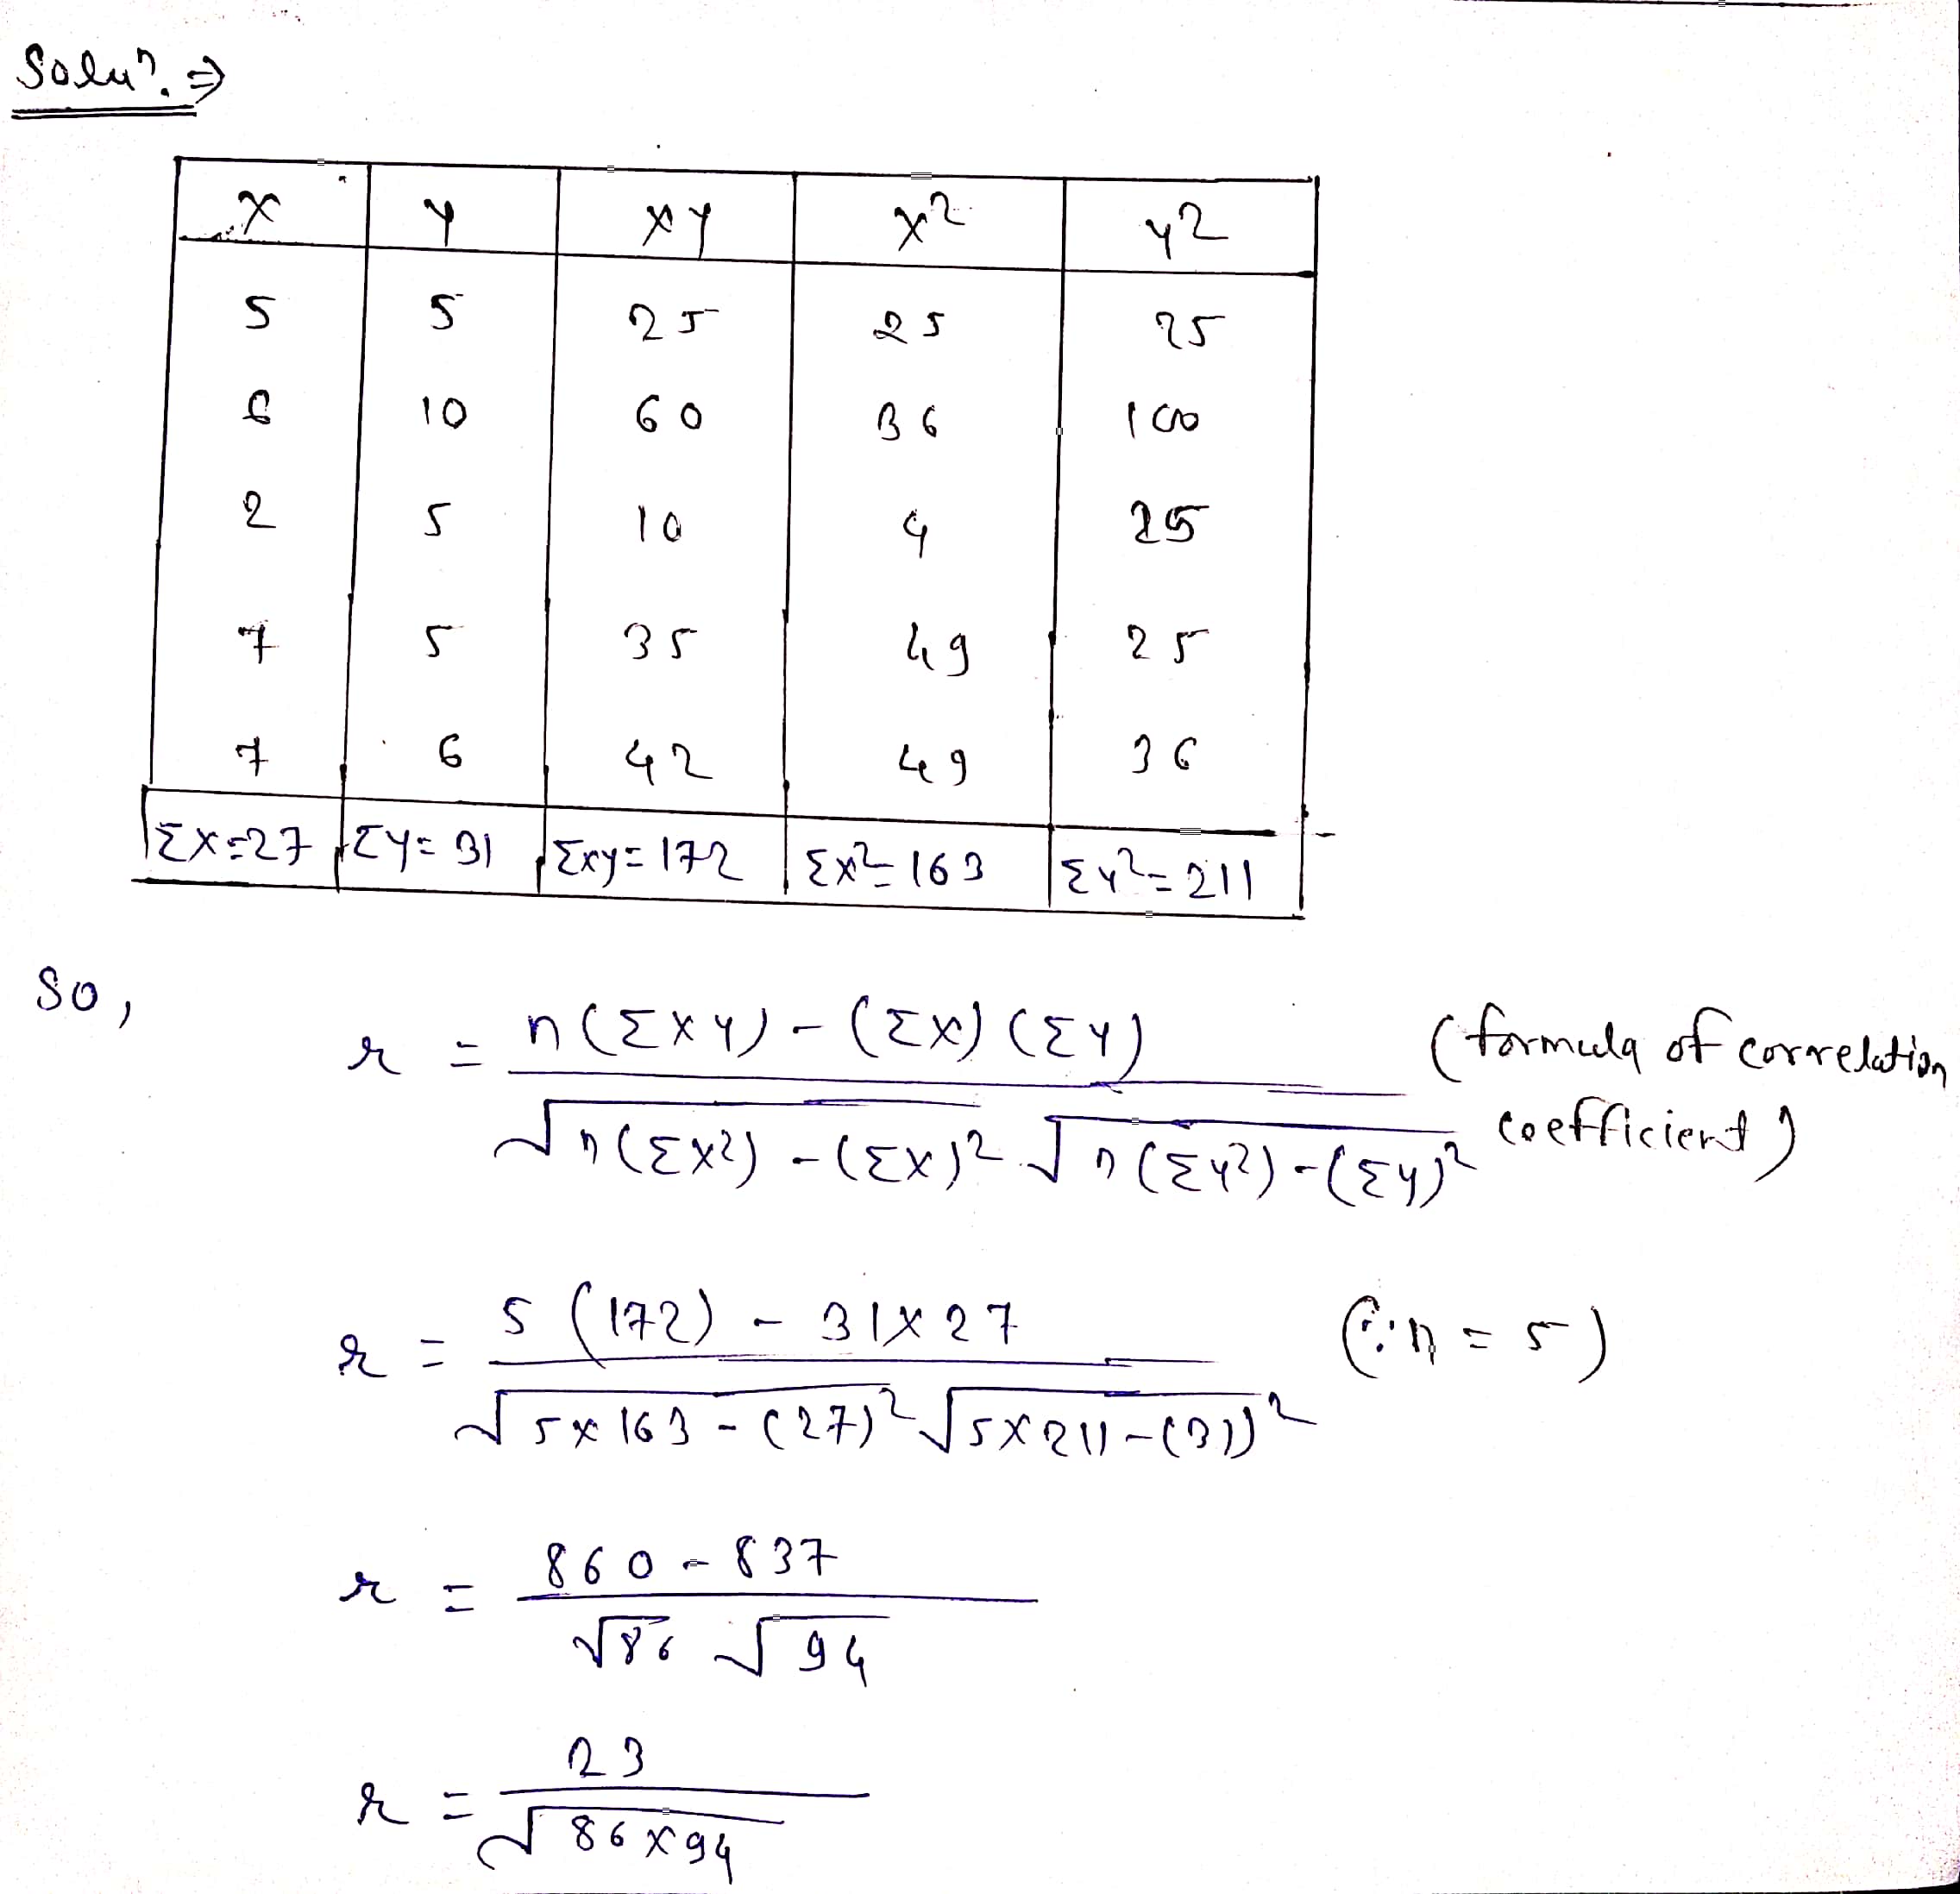 Soluⁿ. ⇒
X Y XY X² Y²
5 5 25 25 25
6 10 60 36 100
2 5 10 4 25
7 5 35 49 25
7 6 42 49 36
ΣX=27 ΣY=31 ΣXY=172 ΣX²=163 ΣY²=211
So,
r = n(ΣXY) - (ΣX)(ΣY) / √n(ΣX²) - (ΣX)² √n(ΣY²) - (ΣY)² (formula of correlation coefficient)
r = 5(172) - 31×27 / √5×163 - (27)² √5×211 - (31)² (∵ n = 5)
r = 860 - 837 / √86 √94
r = 23 / √86×94